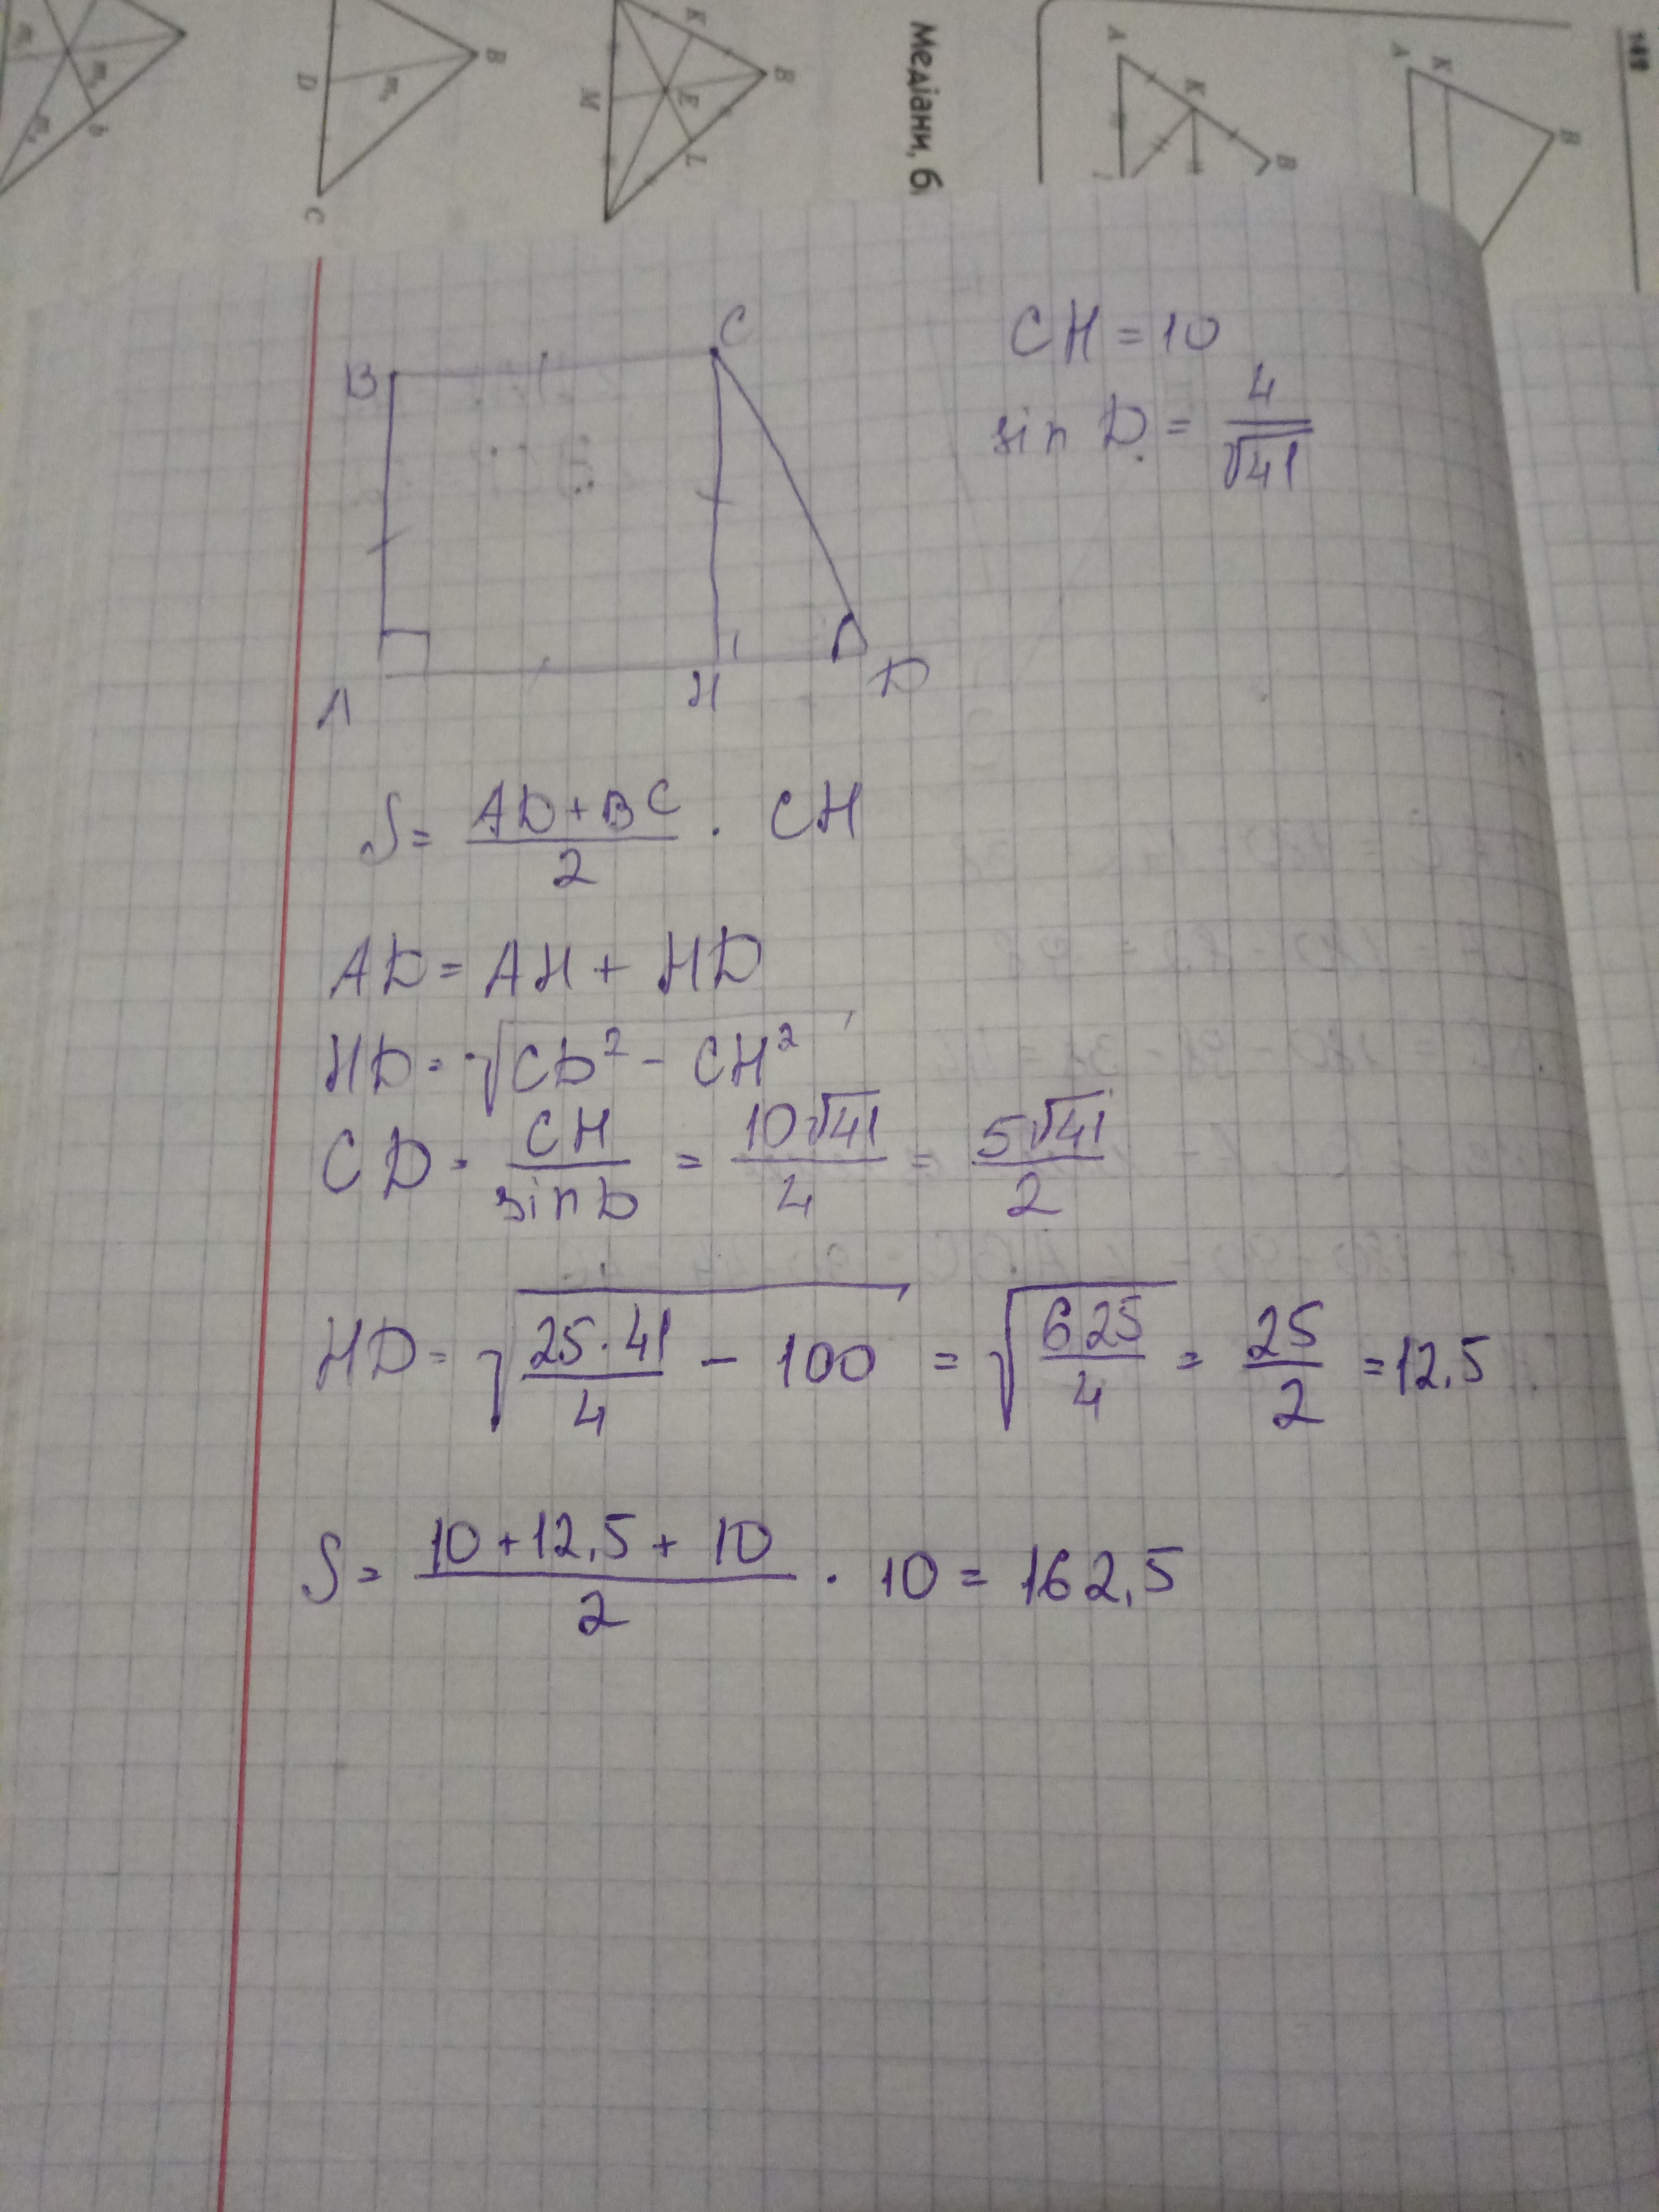 Медіани, б
B
C
A
H
D
CH = 10
sin D = 4/√41
S = (AD + BC)/2 · CH
AD = AH + HD
HD = √(CD² − CH²)
CD = CH/sin D = 10√41/4 = 5√41/2
HD = √(25·41/4 − 100) = √(625/4) = 25/2 = 12,5
S = (10 + 12,5 + 10)/2 · 10 = 162,5